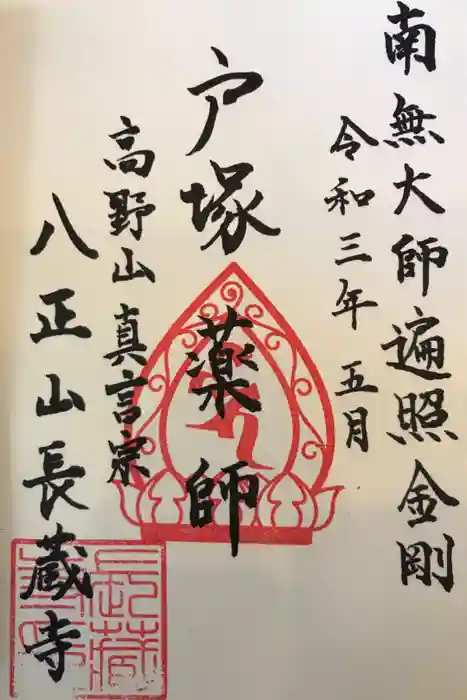 南無大師遍照金剛
令和三年五月
戸塚薬師
高野山真言宗
八正山長蔵寺